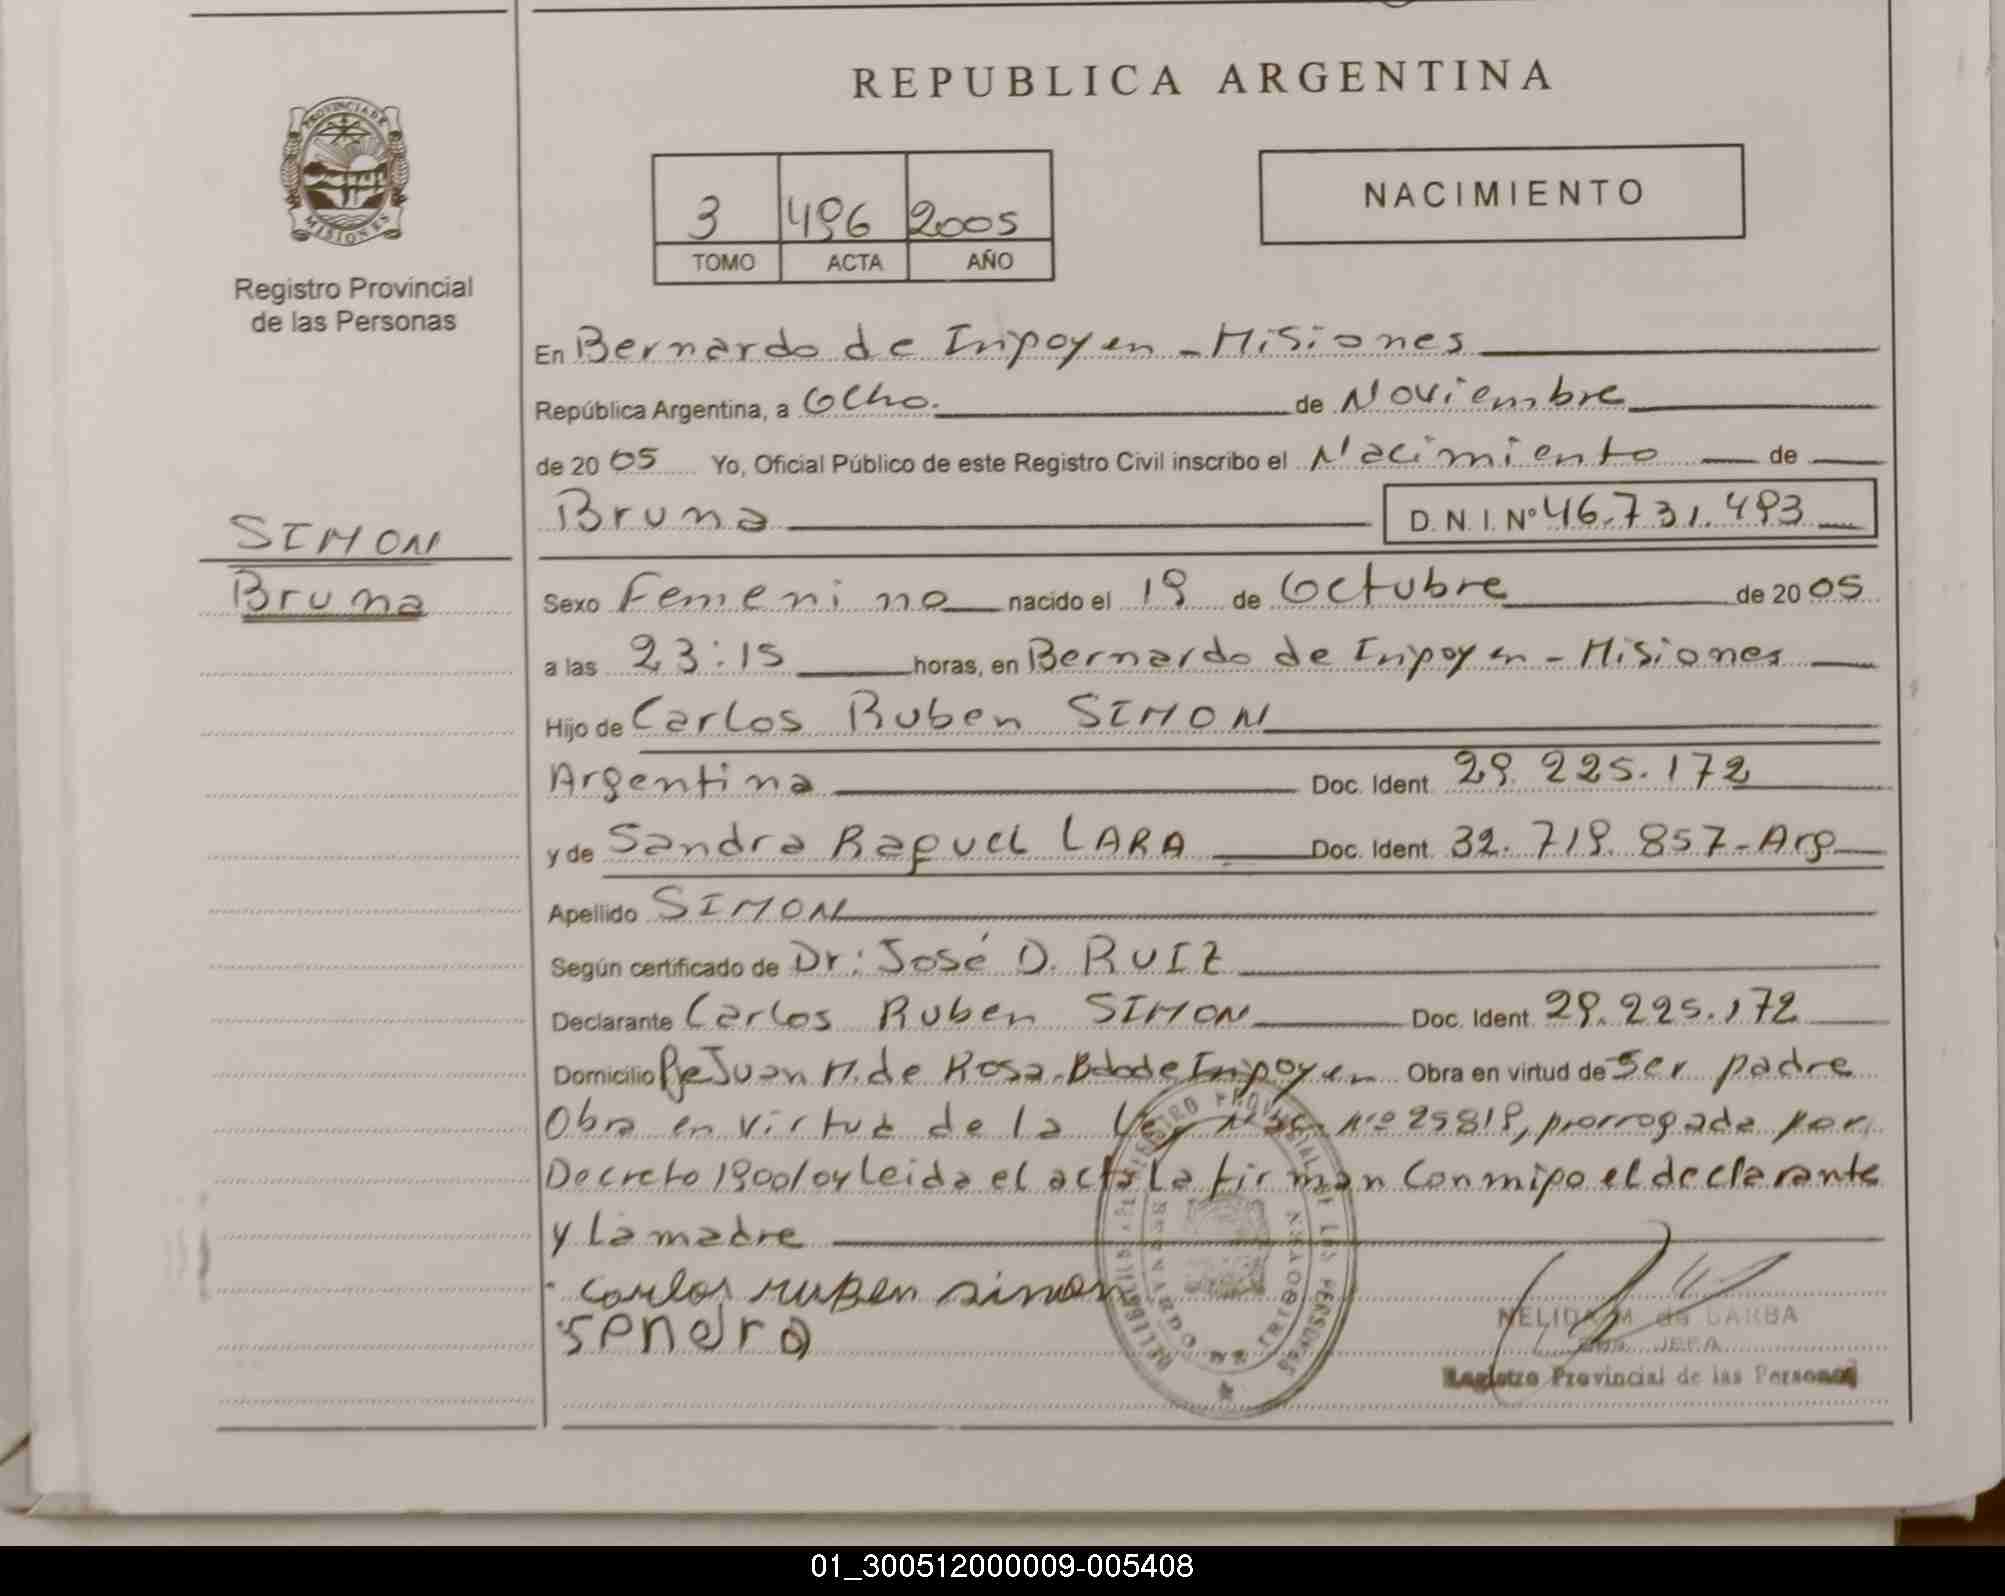 REPUBLICA ARGENTINA
PROVINCIA DE
MISIONES
Registro Provincial
de las Personas
3 496 2005
TOMO ACTA AÑO
NACIMIENTO
En Bernardo de Iripoyen - Misiones
República Argentina, a Ocho. de Noviembre
de 20 05 Yo, Oficial Público de este Registro Civil inscribo el Nacimiento de
Bruna D.N.I. Nº 46.731.493
SIMON
Bruna
Sexo Femenino nacido el 19 de Octubre de 20 05
a las 23:15 horas, en Bernardo de Iripoyen - Misiones
Hijo de Carlos Ruben SIMON
Argentina Doc. Ident. 29.225.172
y de Sandra Raquel LARA Doc. Ident. 32.719.857-Arg
Apellido SIMON
Según certificado de Dr: José D. RUIZ
Declarante Carlos Ruben SIMON Doc. Ident. 29.225.172
Domicilio Juan M. de Rosa. Bdo de Iripoyen Obra en virtud de Ser padre
Obra en virtud de la Ley Nº 25819, prorrogada por
Decreto 1900/04 Leida el acta La firman Conmigo el declarante
y La madre
carlos ruben simon
Sandra
NELIDA M. de BARBA
JEFA
Registro Provincial de las Personas
01_300512000009-005408